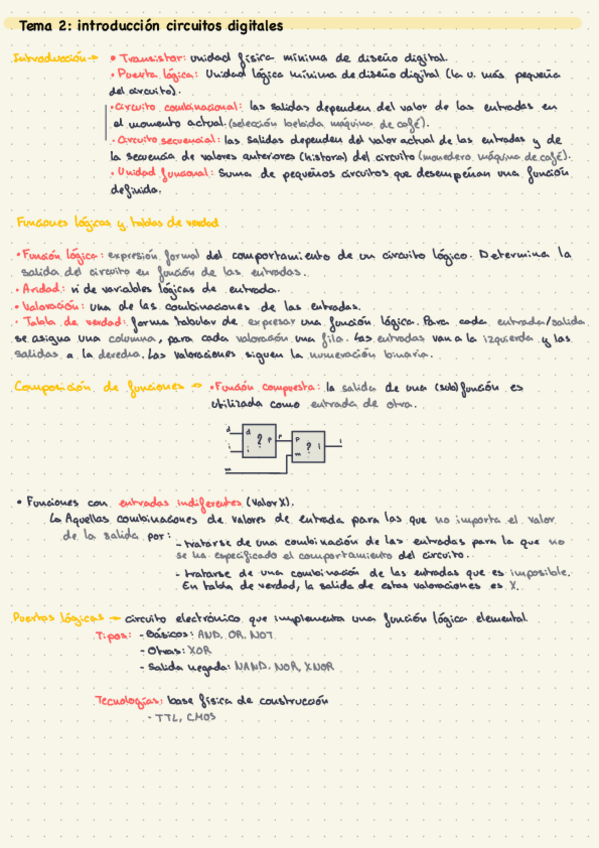 Tema 2: introducción circuitos digitales
Introducción → • Transistor: unidad física mínima de diseño digital.
• Puerta lógica: Unidad lógica mínima de diseño digital (la u. más pequeña
del circuito).
• Circuito combinacional: las salidas dependen del valor de las entradas en
el momento actual (selección bebida máquina de café).
• Circuito secuencial: las salidas dependen del valor actual de las entradas y de
la secuencia de valores anteriores (historia) del circuito (monedero máquina de café).
• Unidad funcional: Suma de pequeños circuitos que desempeñan una función
definida.
Funciones lógicas y tablas de verdad
• Función lógica: expresión formal del comportamiento de un circuito lógico. Determina la
salida del circuito en función de las entradas.
• Aridad: nº de variables lógicas de entrada.
• Valoración: una de las combinaciones de las entradas.
• Tabla de verdad: forma tabular de expresar una función lógica. Para cada entrada/salida
se asigna una columna, para cada valoración una fila. Las entradas van a la izquierda y las
salidas a la derecha. Las valoraciones siguen la numeración binaria.
Composición de funciones → • Función compuesta: la salida de una (sub)función es
utilizada como entrada de otra.
d d ? P P P ? l l
i i m
m
• Funciones con entradas indiferentes (valor X).
↳ Aquellas combinaciones de valores de entrada para las que no importa el valor
de la salida por:
- tratarse de una combinación de las entradas para la que no
se ha especificado el comportamiento del circuito.
- tratarse de una combinación de las entradas que es imposible.
En tabla de verdad, la salida de estas valoraciones es X.
Puertas lógicas → circuito electrónico que implementa una función lógica elemental
Tipos: - Básicos: AND, OR, NOT
- Otras: XOR
- Salida negada: NAND, NOR, XNOR
Tecnologías: base física de construcción
- TTL, CMOS